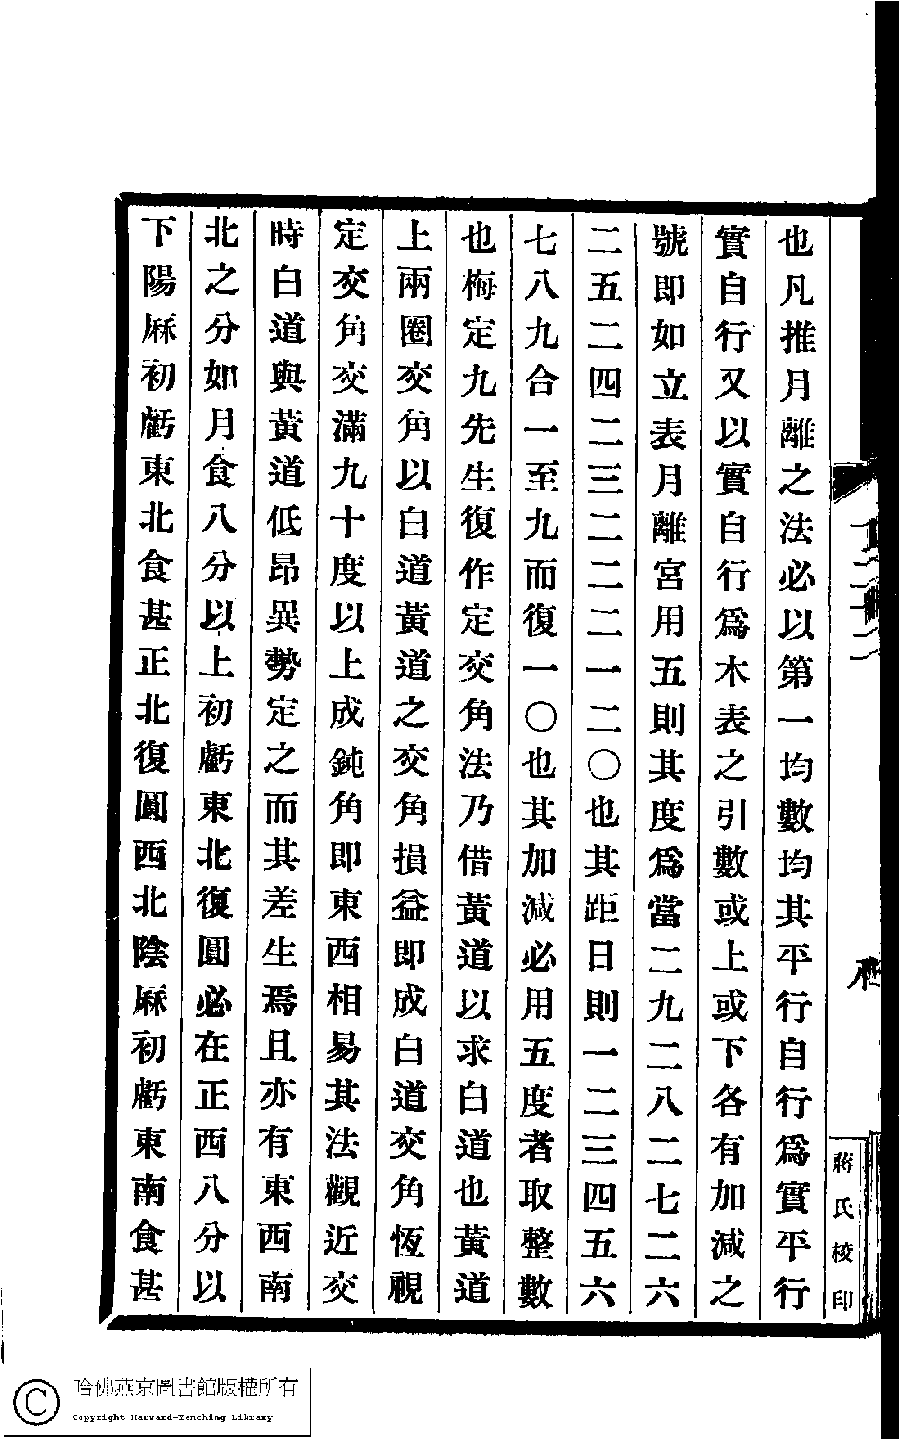 也凡推月離之法必以第一均數均其平行自行為實平行
實自行又以實自行為木表之引數或上或下各有加減之
號即如立表月離宮用五則其度為當二九二八二七二六
二五二四二三二二二一二〇也其距日則一二三四五六
七八九合一至九而復一〇也其加減必用五度者取整數
也梅定九先生復作定交角法乃借黃道以求白道也黃道
上兩圈交角以白道黃道之交角損益即成白道交角恆視
定交角交滿九十度以上成鈍角即東西相易其法觀近交
時白道與黃道低昂異勢定之而其差生焉且亦有東西南
北之分如月食八分以上初虧東北復圓必在正西八分以
下陽厤初虧東北食甚正北復圓西北陰厤初虧東南食甚
蔣氏校印
哈佛燕京圖書館版權所有
Copyright Harvard-Yenching Library